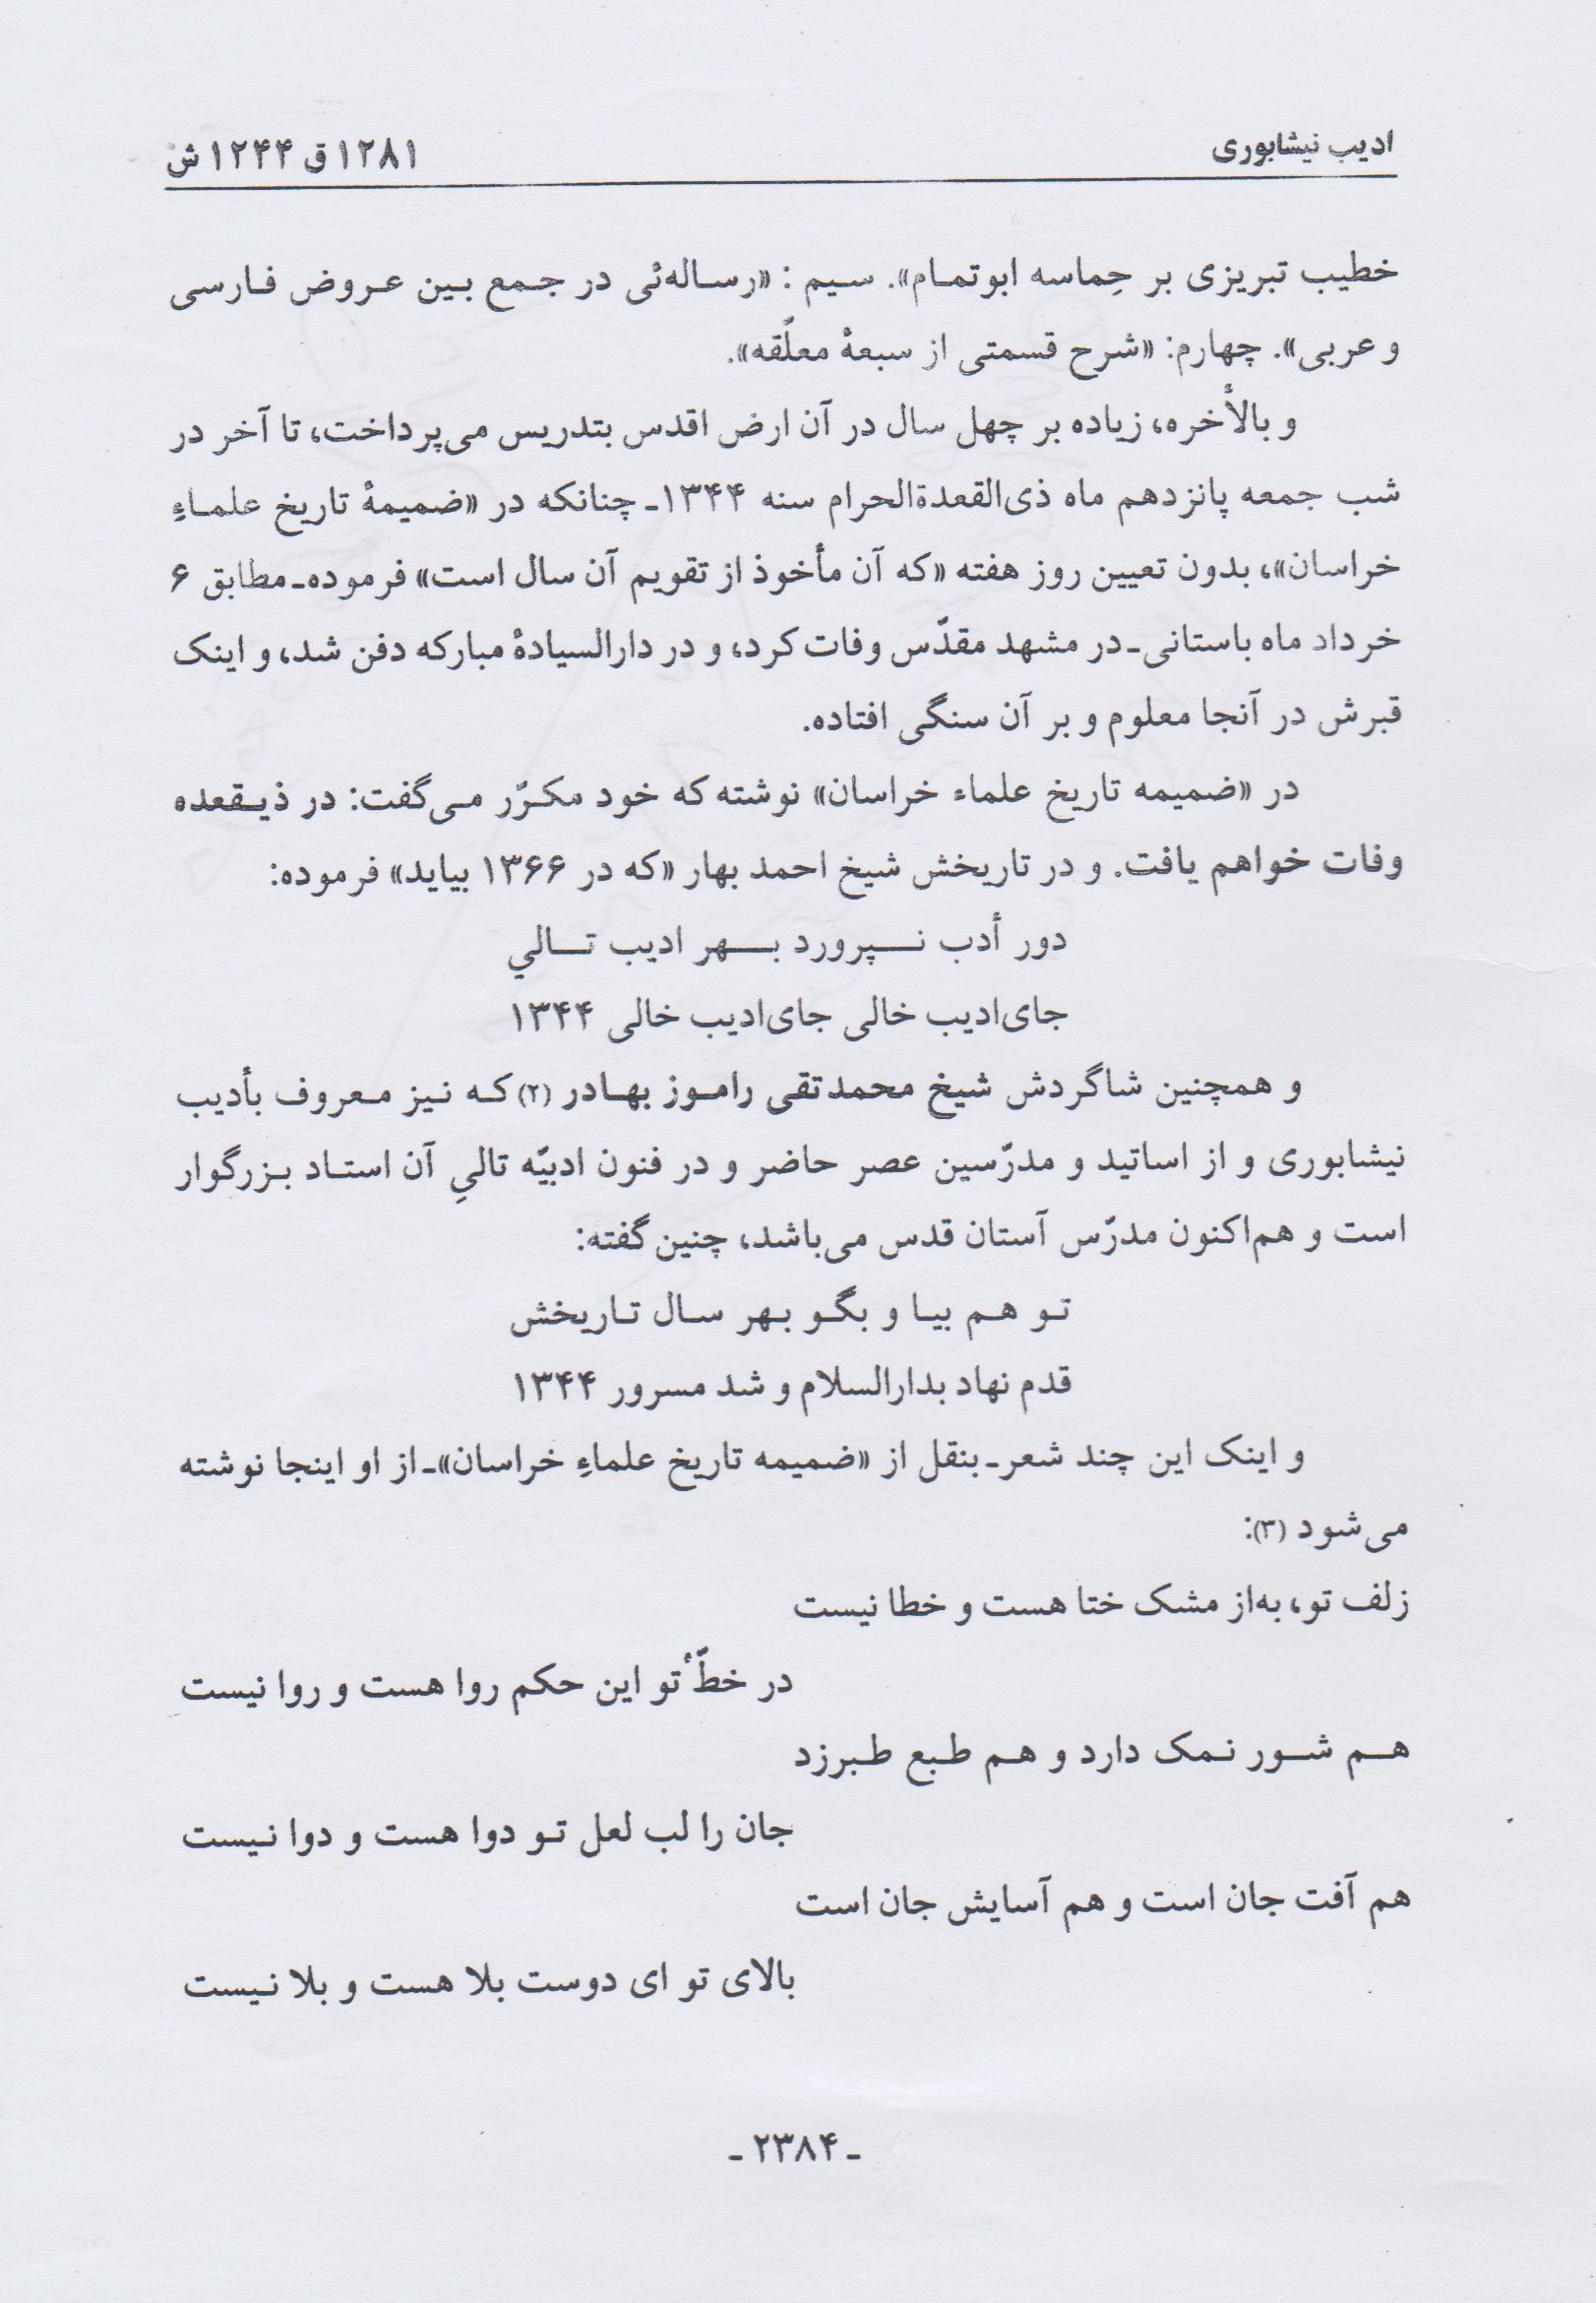 ادیب نیشابوری
۱۲۸۱ ق ۱۲۴۴ ش
خطیب تبریزی بر حِماسه ابوتمام». سیم : «رساله‌ئی در جمع بین عروض فارسی
و عربی». چهارم: «شرح قسمتی از سبعهٔ معلّقه».
و بالأخره، زیاده بر چهل سال در آن ارض اقدس بتدریس می‌پرداخت، تا آخر در
شب جمعه پانزدهم ماه ذی‌القعدةالحرام سنه ۱۳۴۴ـ چنانکه در «ضمیمهٔ تاریخ علماءِ
خراسان»، بدون تعیین روز هفته «که آن مأخوذ از تقویم آن سال است» فرموده‌ـ مطابق ۶
خرداد ماه باستانی‌ـ در مشهد مقدّس وفات کرد، و در دارالسیادهٔ مبارکه دفن شد، و اینک
قبرش در آنجا معلوم و بر آن سنگی افتاده.
در «ضمیمه تاریخ علماء خراسان» نوشته که خود مکرّر می‌گفت: در ذیقعده
وفات خواهم یافت. و در تاریخش شیخ احمد بهار «که در ۱۳۶۶ بیاید» فرموده:
دور أدب نپرورد بهر ادیب تالي
جای‌ادیب خالی جای‌ادیب خالی ۱۳۴۴
و همچنین شاگردش شیخ محمدتقی راموز بهادر (۲) که نیز معروف بأدیب
نیشابوری و از اساتید و مدرّسین عصر حاضر و در فنون ادبیّه تالیِ آن استاد بزرگوار
است و هم‌اکنون مدرّس آستان قدس می‌باشد، چنین گفته:
تو هم بیا و بگو بهر سال تاریخش
قدم نهاد بدارالسلام و شد مسرور ۱۳۴۴
و اینک این چند شعر‌ـ بنقل از «ضمیمه تاریخ علماءِ خراسان»‌ـ از او اینجا نوشته
می‌شود (۳):
زلف تو، به‌از مشک ختا هست و خطا نیست
در خطّ تو این حکم روا هست و روا نیست
هم شور نمک دارد و هم طبع طبرزد
جان را لب لعل تو دوا هست و دوا نیست
هم آفت جان است و هم آسایش جان است
بالای تو ای دوست بلا هست و بلا نیست
ـ ۲۳۸۴ ـ